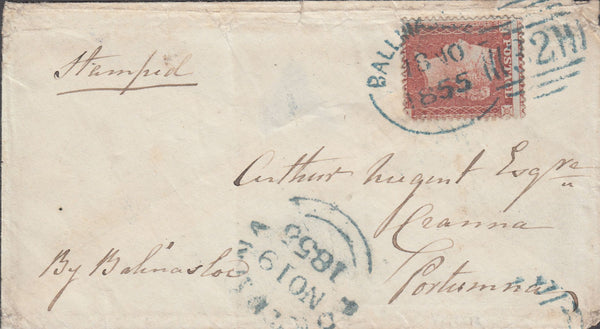 Stamped
BALLINA
18 NO
1855
POSTAGE
Arthur Nugent Esqre
Cranna
Portumna
By Balinasloe
NO 19
1855